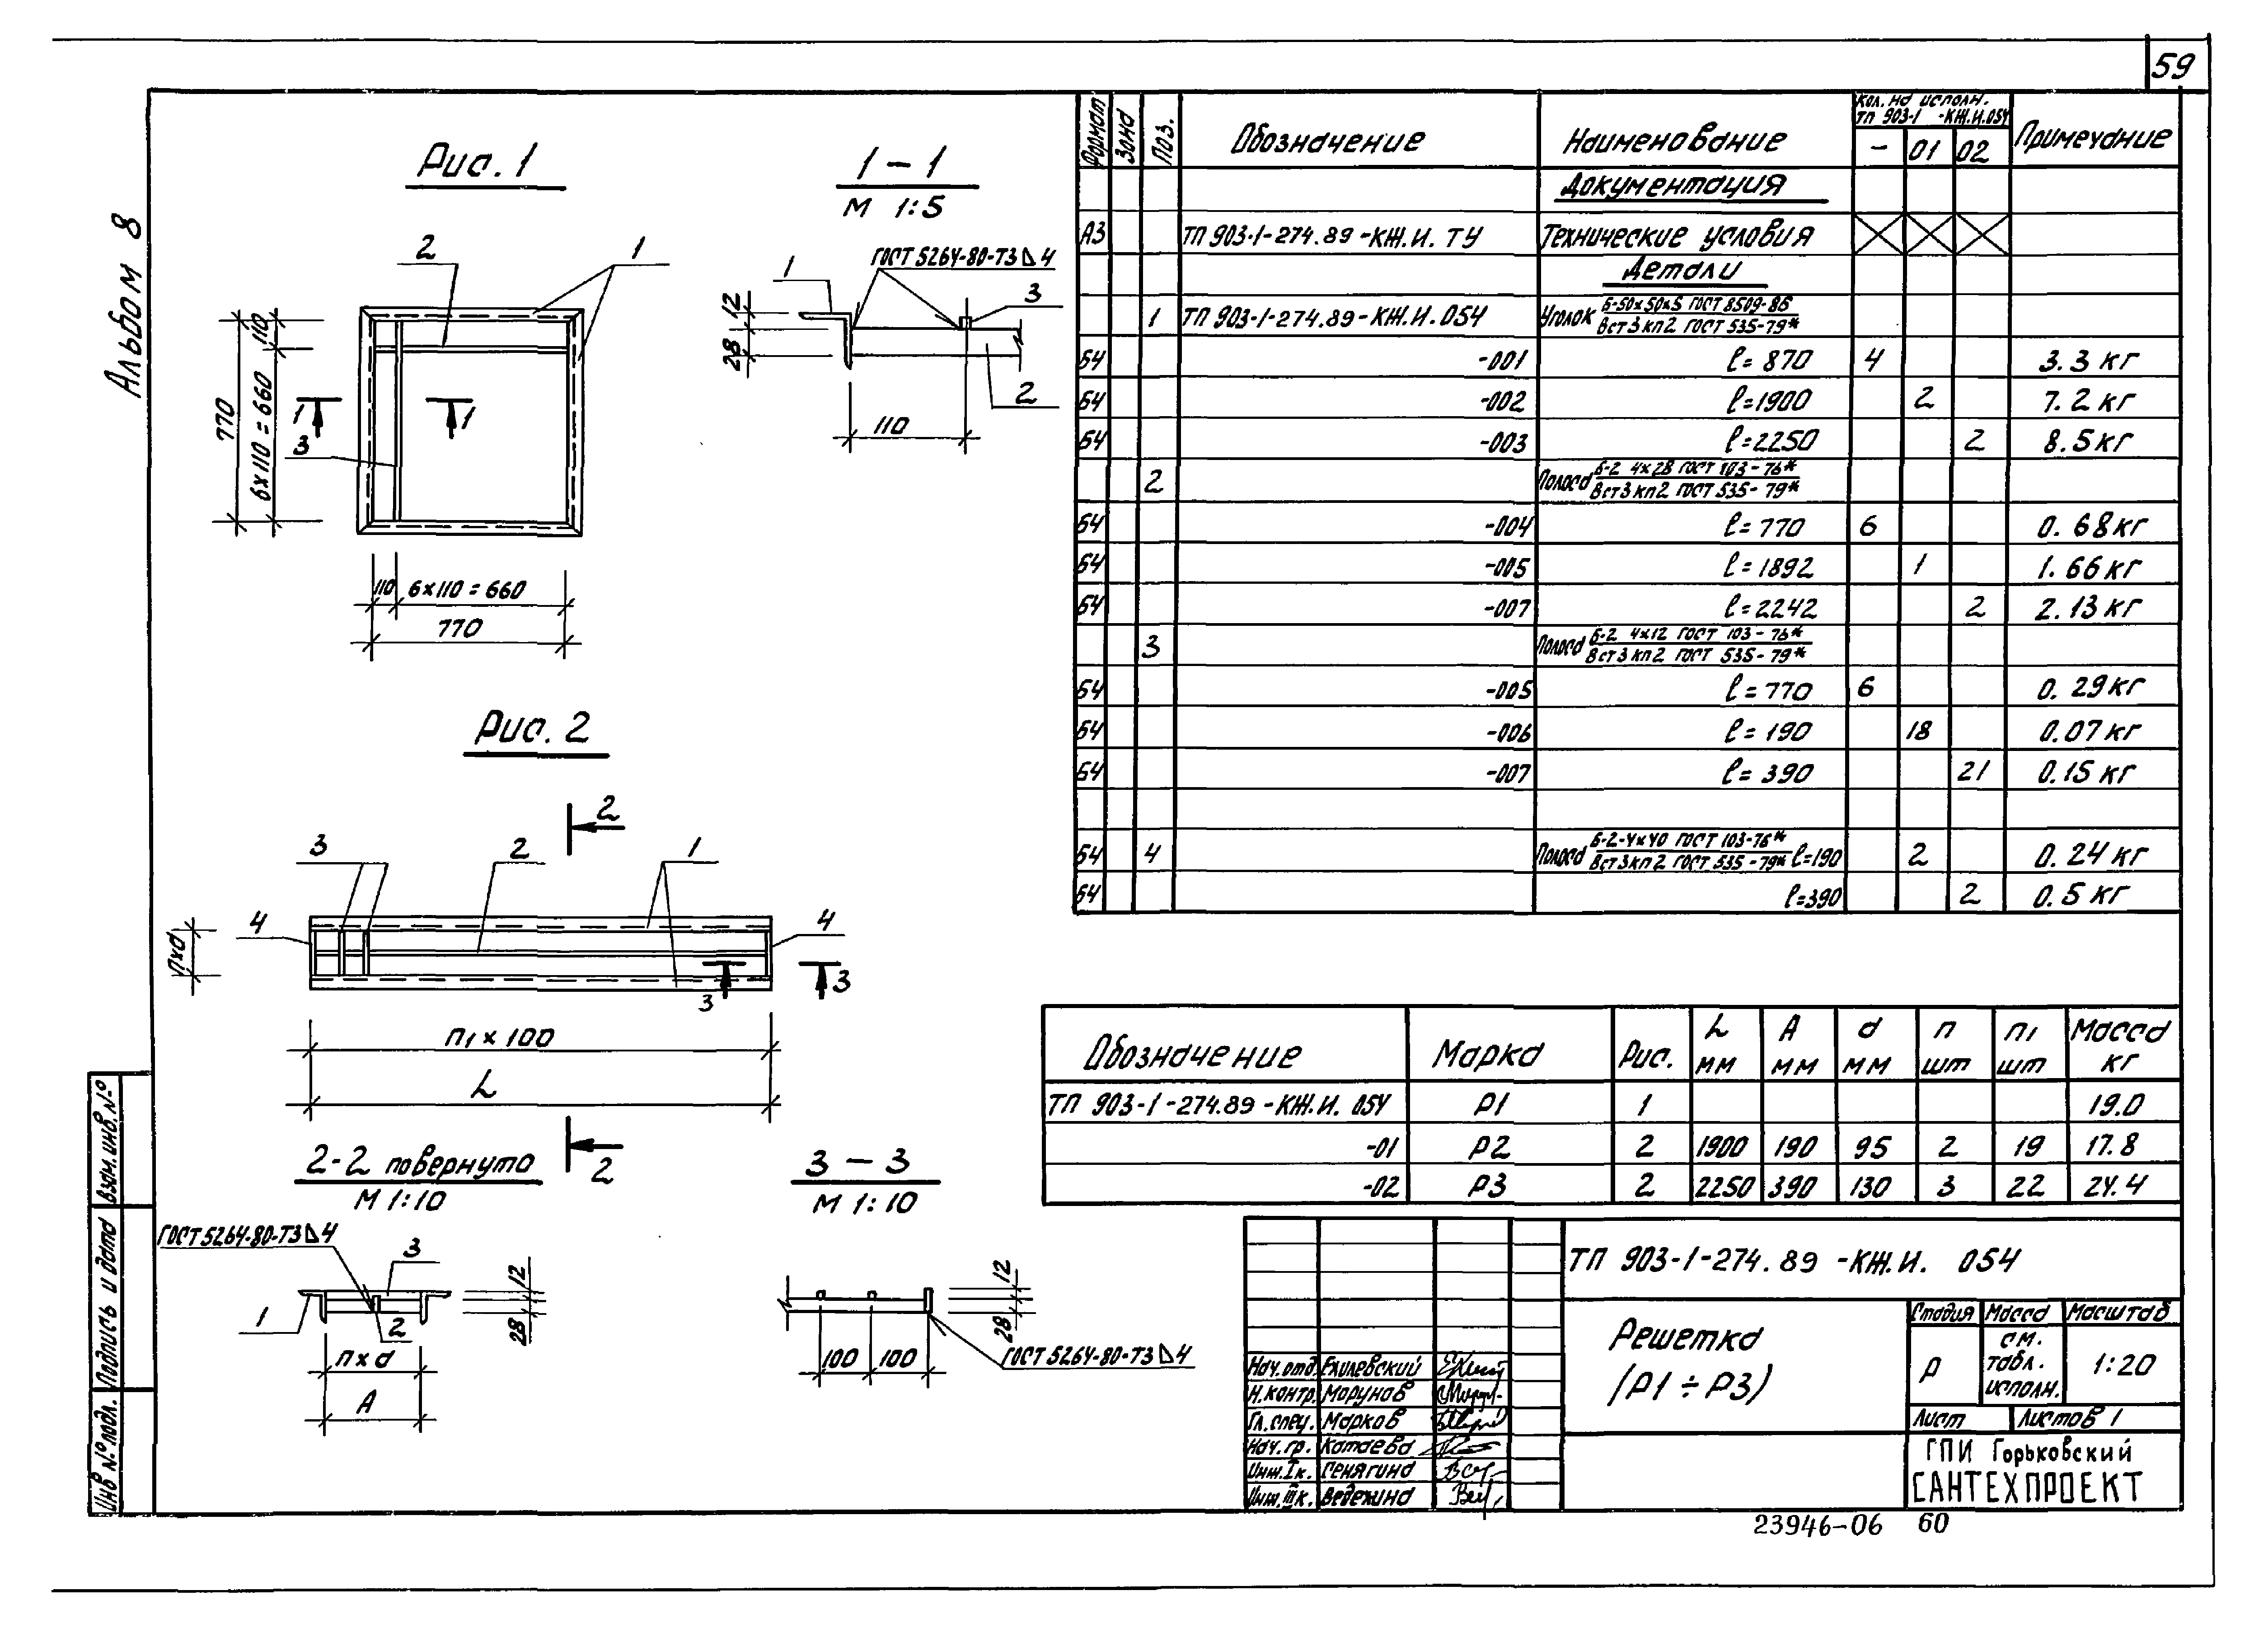 59
Альбом 8
Рис. 1
1
2
110
770
6х110=660
1
1
3
110 6х110=660
770
1-1
М 1:5
ГОСТ 5264-80-Т3 4
1
3
12
28
2
110
Рис. 2
2
3 2 1
4 4
nхd
3 3
n1 х 100
L
2
2-2 повернуто
М 1:10
ГОСТ 5264-80-Т3 4
3
12
28
1
2
nхd
А
3-3
М 1:10
12
28
100 100
ГОСТ 5264-80-Т3 4
Формат Зона Поз. Обозначение Наименование Кол. на исполн. ТП 903-1 -КЖ.И.054 Примечание
- 01 02
Документация
А3 ТП 903-1-274.89-КЖ.И. ТУ Технические условия
Детали
1 ТП 903-1-274.89-КЖ.И.054 Уголок Б-50х50х5 ГОСТ 8509-86
Вст3кп2 ГОСТ 535-79*
БЧ -001 ℓ= 870 4 3.3 кг
БЧ -002 ℓ=1900 2 7.2 кг
БЧ -003 ℓ=2250 2 8.5 кг
2 Полоса Б-2 4х28 ГОСТ 103-76*
Вст3кп2 ГОСТ 535-79*
БЧ -004 ℓ=770 6 0.68 кг
БЧ -005 ℓ=1892 1 1.66 кг
БЧ -007 ℓ=2242 2 2.13 кг
3 Полоса Б-2 4х12 ГОСТ 103-76*
Вст3кп2 ГОСТ 535-79*
БЧ -005 ℓ=770 6 0.29 кг
БЧ -006 ℓ=190 18 0.07 кг
БЧ -007 ℓ=390 21 0.15 кг
БЧ 4 Полоса Б-2-4х40 ГОСТ 103-76*
Вст3кп2 ГОСТ 535-79* ℓ=190 2 0.24 кг
БЧ ℓ=390 2 0.5 кг
Обозначение Марка Рис. L мм А мм d мм n шт n1 шт Масса кг
ТП 903-1-274.89-КЖ.И. 054 Р1 1 19.0
-01 Р2 2 1900 190 95 2 19 17.8
-02 Р3 2 2250 390 130 3 22 24.4
ТП 903-1-274.89 -КЖ.И. 054
Решетка
(Р1÷Р3)
Стадия Масса Масштаб
Р см. табл. исполн. 1:20
Лист Листов 1
ГПИ Горьковский
САНТЕХПРОЕКТ
Нач.отд. Ехилевский
Н.контр. Марунов
Гл.спец. Марков
Нач.гр. Катаева
Инж.Iк. Сенягина
Инж.IIIк.
Взам.инв.№
Подпись и дата
Инв №подл.
23946-06 60